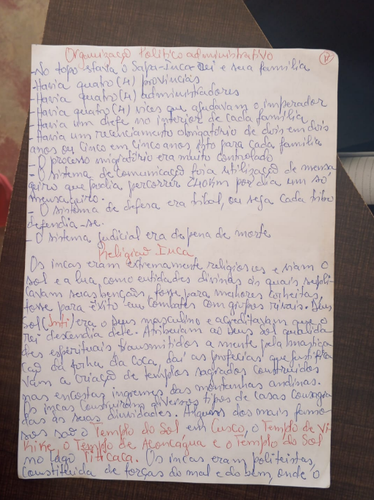 Organização Político administrativo
V
-No topo stava o Sapa-Inca Rei e sua família
-Havia quatro (4) províncias
-Havia quatro (4) administradores
-Havia quatro (4) vices que ajudavam o imperador
-Havia um chefe no interior de cada família
-Havia um recenciamento obrigatório de dois em dois
anos ou cinco em cinco anos isto para cada família
- O processo migratório era muito controlado
- O sistema de comunicação foi a utilização de mensa
geiro que podia percorrer 240km por dia um só
mensageiro.
- O sistema de defesa era tribal, ou seja cada tribo
defendia-se.
- O sistema judicial era da pena de morte
Religião Inca
Os incas eram extremamente religiosos e viam o
sol e a lua como entidades divinas ás quais supli
cavam suas bençãos, fosse para melhores colheitas,
fosse para êxito em combates com grupos rivais. O deus
sol (Inti) era o deus masculino e acreditavam que o
rei descendia dele. Atribuiam ao deus sol qualida
des espirituais transmitidos a mente pela mastiga
ção da folha da coca, daí as profecias que justifica
vam a criação de templos sagrados construídos
nas encostas ingremes das montanhas andinas.
Os incas construiram diversos tipos de casas consagra
das às suas divindades. Alguns dos mais famo
sos são o Templo do Sol em Cusco, o Templo de Vi
kike, o Templo do Aconcágua e o Templo do Sol
no lago Titicaca. Os incas eram politeistas,
constituida de forças do mal e do bem, onde o